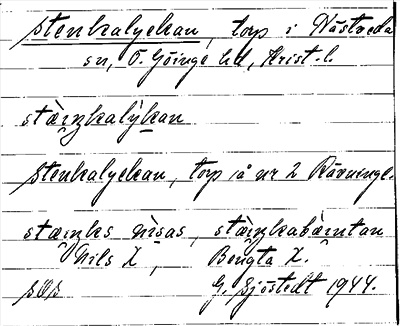 stenkalyckan, torp i Nästveda
sn, Ö. Göinge hd, Krist. l.
stæ̀ıŋkalỳkan
stenkalyckan, torp i å nr 2 Rävninge.
stæıŋks nìsas, stæ̀ıŋkabæ̀ıntan
Nils X, Bengta X.
G. Sjöstedt 1944.